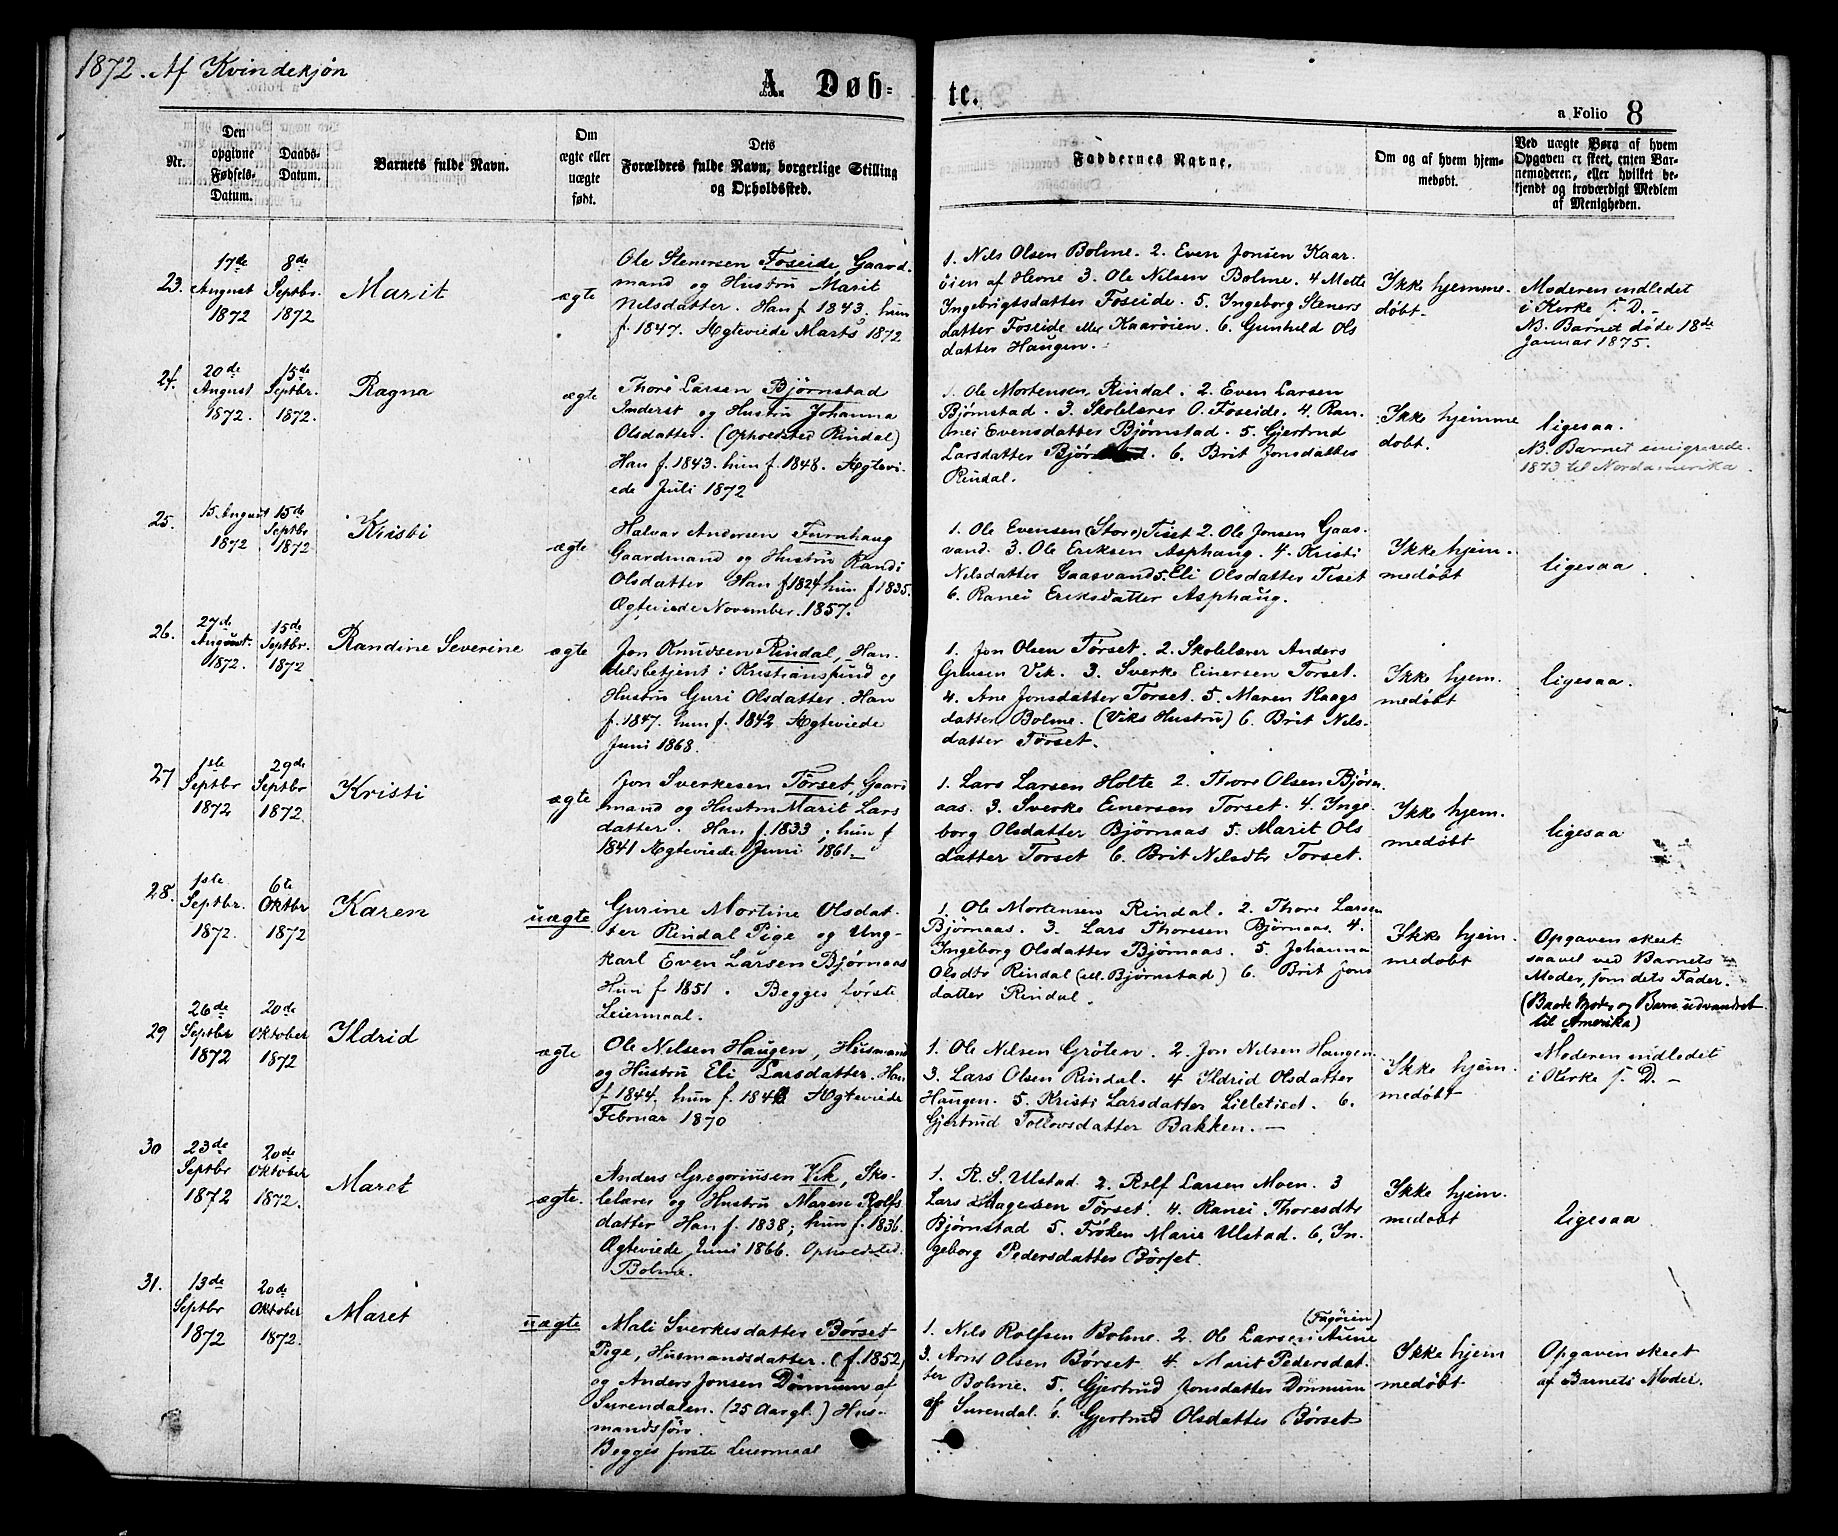 1872. Af Kvindekjøn
A. Døb=
te.
a Folio 8
Nr.
Den
opgivne
Fødsels-
Datum.
Daabs-
Datum.
Barnets fulde Navn.
Om
ægte eller
uægte
født.
Dets
Forældres fulde Navn, borgerlige Stilling
og Opholdssted.
Faddernes Navne.
Om og af hvem hjem-
medøbt.
Ved uægte Børn af hvem
Opgaven er skeet, enten Bar-
nemoderen, eller hvilket be-
kjendt og troværdigt Medlem
af Menigheden.
23.
17de
August
1872
8de
Septbr.
1872
Marit
ægte
Ole Stenersen Foseide, Gaard-
mand og Hustru Marit
Nilsdatter. Han f 1843, hun
f. 1847. Ægteviede Marts 1872
1. Nils Olsen Bolme. 2. Even Jonsen Kaar
øien af Hevne 3. Ole Nilsen Bolme. 4 Mette
Ingebrigtsdatter Foseide. 5. Ingeborg Steners
datter Foseide eller Kaarøien. 6. Gunhild Ols
datter Haugen.
Ikke hjemme-
døbt.
Moderen indledet
i Kirke s. D.
NB. Barnet døde 18de
Januar 1875.
24.
20de
August
1872.
15de
Septbr.
1872.
Ragna
ægte
Thore Larsen Bjørnstad
Inderst og Hustru Johanna
Olsdatter. (Opholdsted Rindal)
Han f. 1843. hun f. 1848. Ægtevi-
ede Juli 1872
1. Ole Mortensen Rindal. 2. Even Larsen
Bjørnstad. 3. Skolelærer O. Foseide. 4. Ran-
nei Evensdatter Bjørnstad. 5. Gjertrud
Larsdatter 6. Brit Jonsdatter
Rindal.
Ikke hjemme
døbt.
ligesaa.
NB. Barnet emigrerede
1873 til Nordamerika.
25.
15. August
1872
15de
Septbr
1872
Kristi
ægte
Halvar Andersen Furuhaug
Gaardmand og Hustru Randi
Olsdatter Han f 1824 hun f 1835.
Ægteviede November. 1857.
1. Ole Evensen (Store) Tiset 2. Ole Jonsen Gaas-
vand. 3. Ole Eriksen Asphaug. 4. Kristi
Nilsdatter Gaasvand 5. Eli Olsdatter Tiset
6. Ranei Eriksdatter Asphaug.
Ikke hjem-
medøbt
ligesaa
26.
27de
August.
1872.
15de
Septbr.
1872
Randine Severine
ægte
Jon Knudsen Rindal, Han-
delsbetjent i Kristianssund og
Hustru Guri Olsdatter. Han
f. 1847. hun f. 1842 Ægteviede
Juni 1868.
1. Jon Olsen Tørset. 2. Skolelærer Anders
Vik. 3. Sverke Einersen Tørset.
4. Ane Jonsdatter Tørset. 5. Maren Raags
datter Bolme. (Viks Hustru) 6. Brit Nils-
datter Tørset.
Ikke hjem.
medøbt
ligesaa.
27
1ste
Septbr
1872
29de
Septbr
1872.
Kristi
ægte
Jon Sverkesen Tørset, Gaard
mand og Hustru Marit Lars
datter. Han f. 1833; hun f
1841 Ægteviede Juni 1861
1. Lars Larsen Holte 2. Thore Olsen Bjørn
aas. 3. Sverke Einersen Tørset. 4. Inge-
borg Olsdatter Bjørnaas 5. Marit Ols
datter Tørset 6. Brit Nilsdtr Tørset.
Ikke hjem-
medøbt
ligesaa
28.
1ste
Septbr.
1872.
6te
Oktbr
1872
Karen
uægte
Gurine Mortine Olsdat-
ter Rindal Pige og Ung-
karl Even Larsen Bjørnaas
Hun f 1851. Begges første
Leiermaal.
1. Ole Mortensen Rindal. 2. Thore Larsen
Bjørnaas. 3. Lars Thoresen Bjørnaas 4.
Ingeborg Olsdatter Bjørnaas. 5. Johanna
Olsdtr Rindal (ell. Bjørnstad) 6. Brit Jons
datter Rindal.
Ikke hjem.
medøbt
Opgaven skeet
saavel ved Barnets
Moder, som dets Fader.
(Baade Moder og Barn udvandret
til Amerika)
29
26de
Septbr
1872
20de
Oktober
1872
Ildrid
ægte
Ole Nilsen Haugen, Husmand
og Hustru Eli Larsdatter. Han
f 1844. hun f. Ægteviede
Februar 1870
1. Ole Nilsen Grøten. 2. Jon Nilsen Haugen
3. Lars Olsen Rindal. 4 Ildrid Olsdatter
Haugen. 5. Kristi Larsdatter Lilletiset. 6.
Gjertrud Tollovsdatter Bakken.
Ikke hjem.
medøbt
Moderen indledet
i Kirke s. D.
30
23de
Septbr
1872
20de
Oktober
1872.
Maret
ægte.
Anders Gregoriusen Vik, Sko-
lelærer og Hustru Maren Rolfs
datter Han f. 1838; hun f. 1836.
Ægteviede Juni 1866. Opholdsted.
Bolme.
1. R. S. Ulstad 2. Rolf Larsen Moen. 3
Lars Aagessen Tørset. 4. Ranei Thoresdtr
Bjørnstad 5. Frøken Marie Ulstad. 6, In-
geborg Pedersdatter Børset.
Ikke hjem.
medøbt
ligesaa
31.
13de
Septbr
1872
20de
Oktober
1872.
Maret
uægte
Mali Sverkesdatter Børset
Pige, Husmandsdatter. (f. 1852)
og Anders Jonsen Dønnum af
Surendalen. (25 Aar gl.) Hus-
mandsføn.
Begges første Leiermaal
1. Nils Rolfsen Bolme. 2. Ole Larsen Aune
(Fagøien)
3. Arnt Olsen Børset. 4. Marit Pedersdat-
ter Bolme. 5. Gjertrud Jonsdatter Dønnum
af Surendal. 6. Gjertrud Olsdatter Børset
Ikke hjem
medøbt
Opgaven skeet
af Barnets Moder.